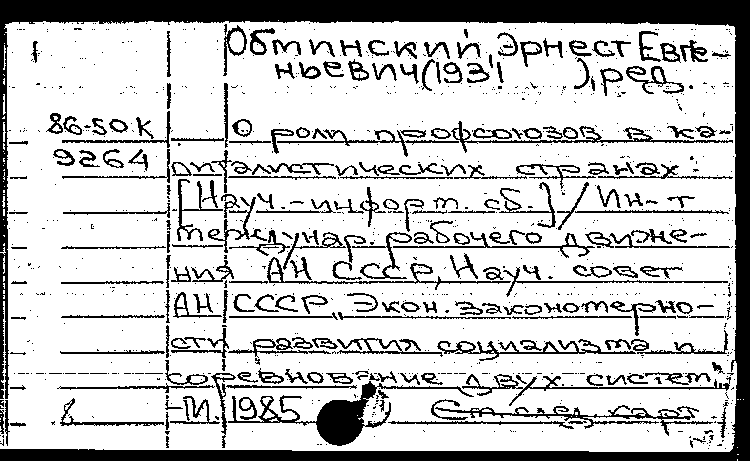 Обминский, Эрнест Евге-
ньевич (1931 ), ред.
86-50К О роли профсоюзов в ка-
9264 питалистических странах:
[Науч.-информ. сб.] / Ин-т
междунар. рабочего движе-
ния АН СССР, Науч. совет
АН СССР „Экон. закономерно-
сти развития социализма и
соревнование двух систем“.
8 -М. 1985 См. след. карт.